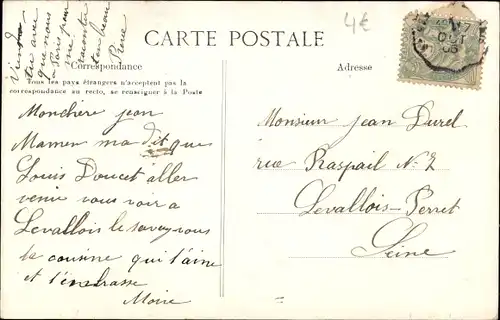 4€
CARTE POSTALE
Correspondance
Adresse
Tous les pays étrangers n'acceptent pas la
correspondance au recto, se renseigner à la Poste
que nous
René
Monchère jean
Maman ma dit que
Louis Doucet aller
venir vous voir a
Levallois le savez vous
ta cousine qui t'aime
et t'embrasse
Monsieur Jean Durel
rue Raspail N° 2
Levallois-Perret
Seine